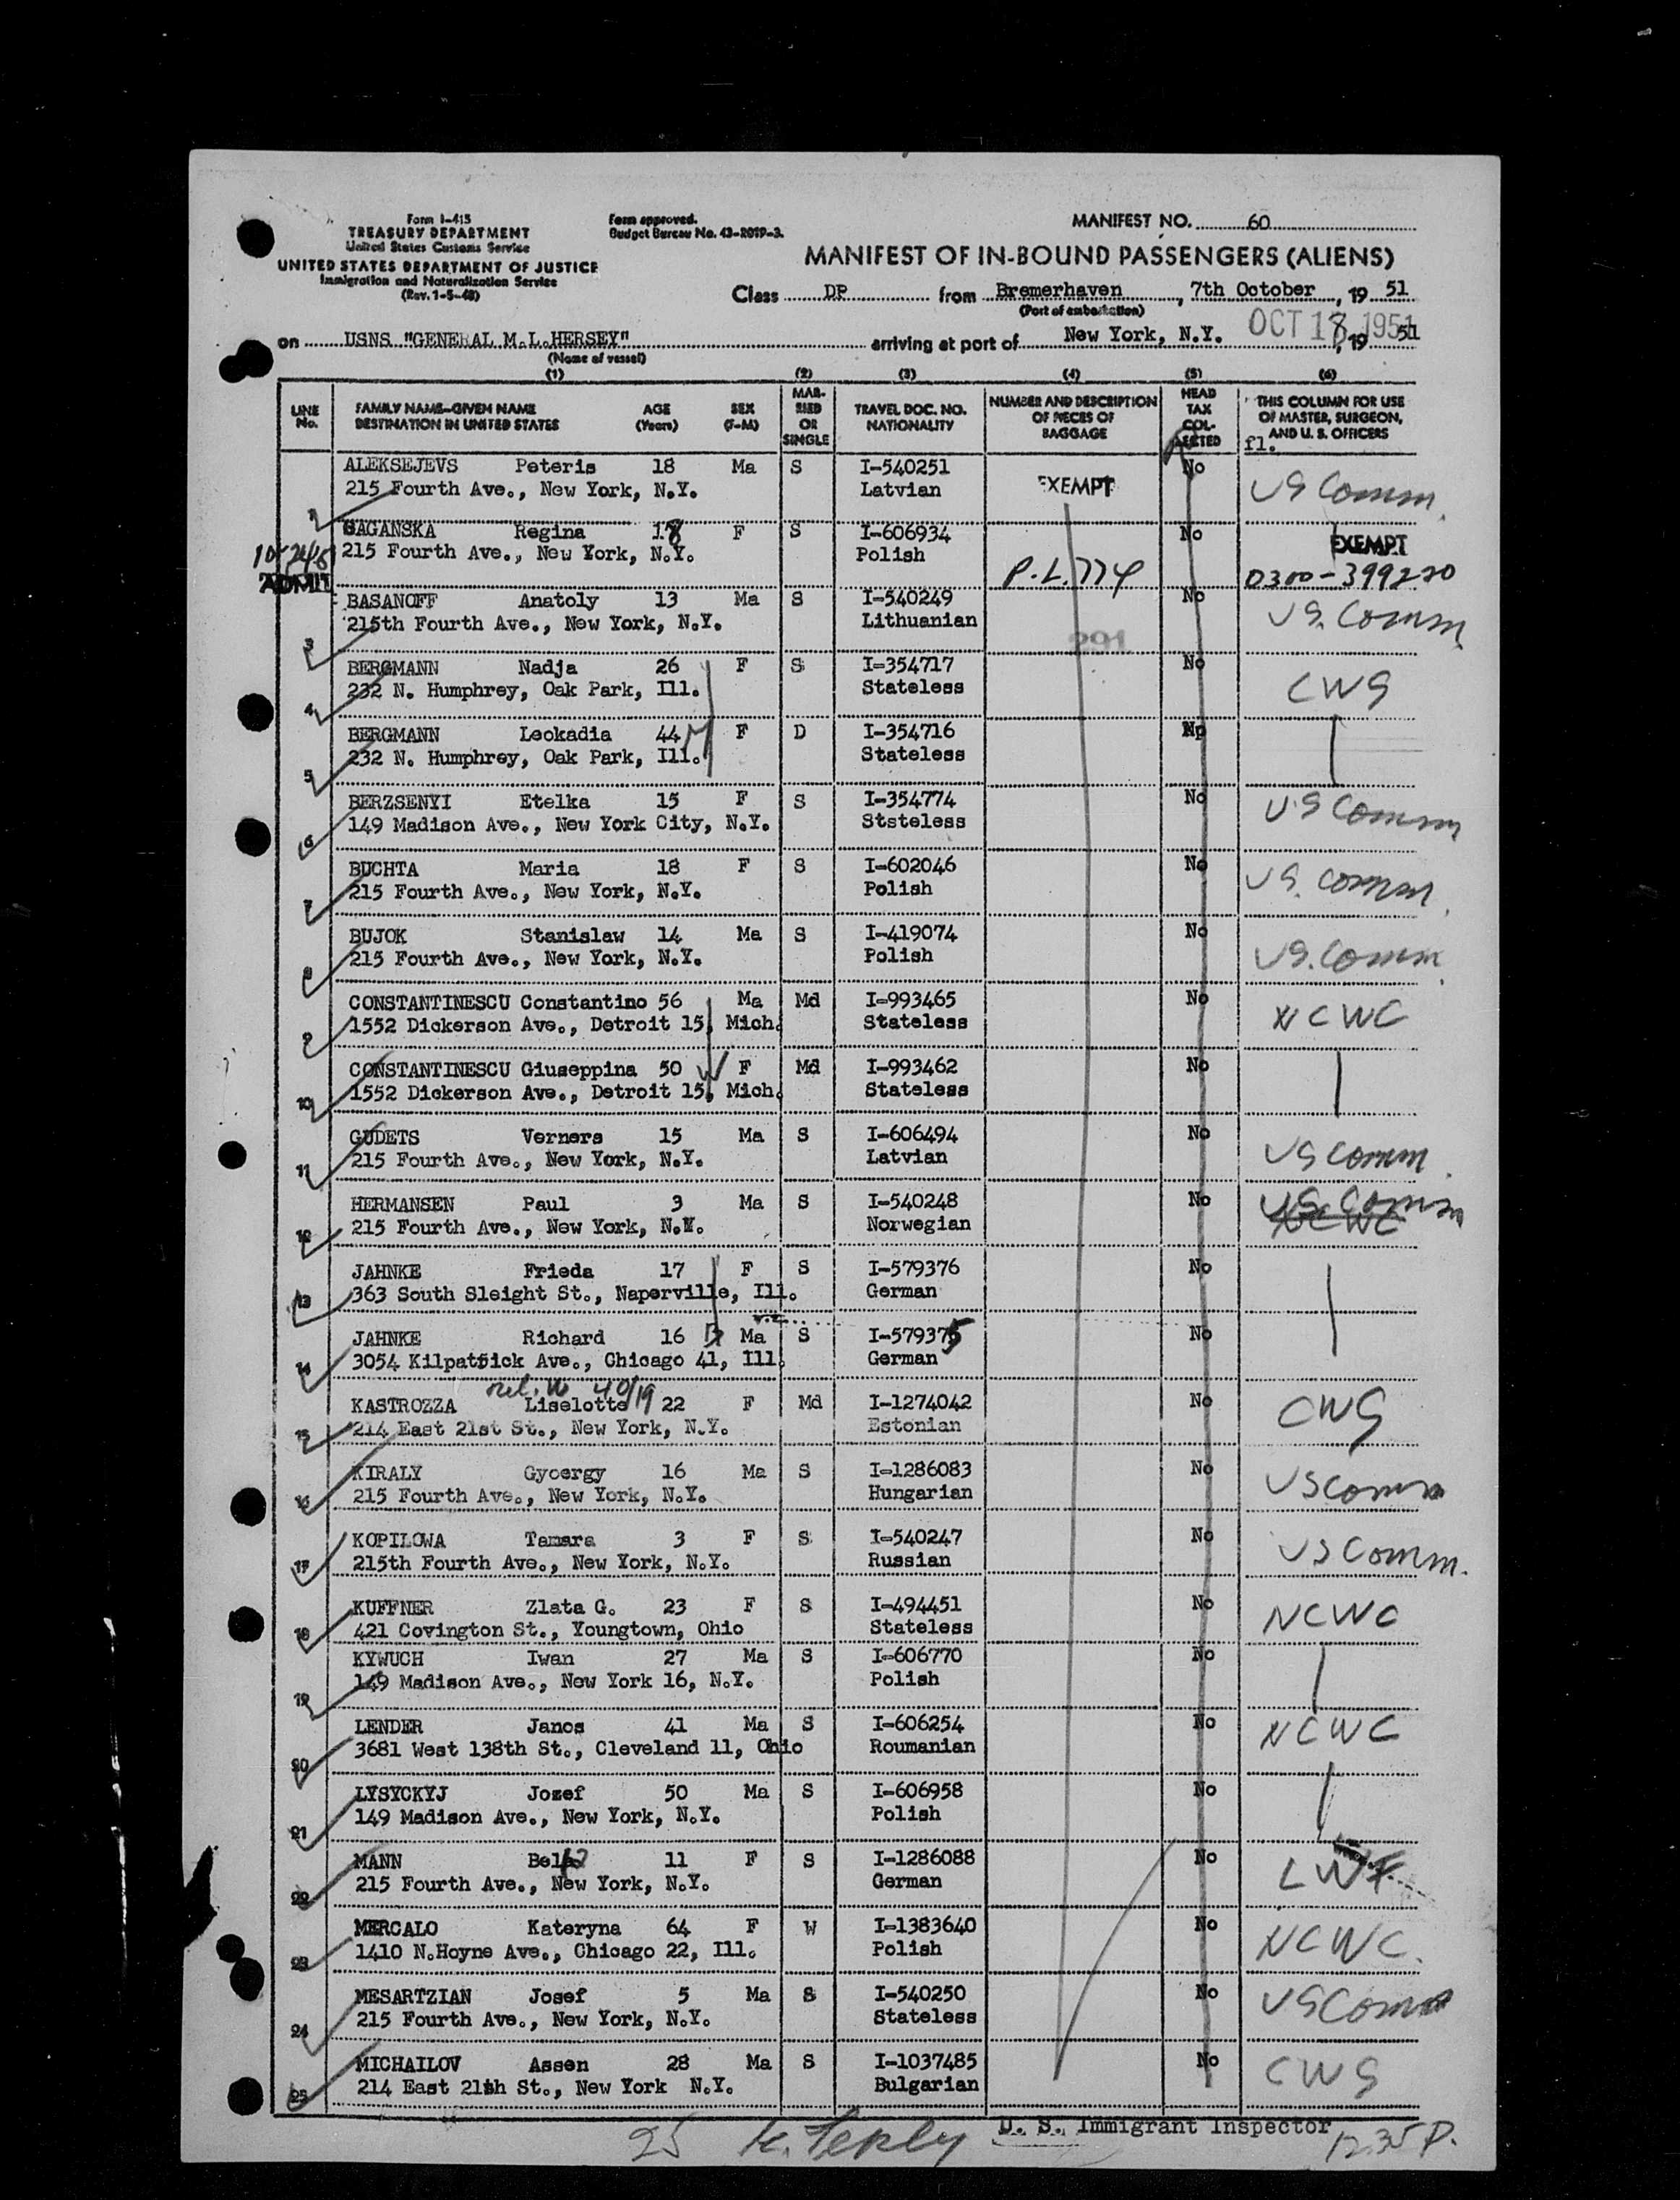 Form I-415
TREASURY DEPARTMENT
United States Customs Service
UNITED STATES DEPARTMENT OF JUSTICE
Immigration and Naturalization Service
(Rev. 1-5-48)
Form approved.
Budget Bureau No. 43-R019-3.
MANIFEST NO. 60
MANIFEST OF IN-BOUND PASSENGERS (ALIENS)
Class DP from Bremerhaven, 7th October, 19 51
(Port of embarkation)
on USNS "GENERAL M.L.HERSEY" arriving at port of New York, N.Y. OCT 18 1951, 19 51
(Name of vessel)
(1) (2) (3) (4) (5) (6)
LINE No. FAMILY NAME—GIVEN NAME DESTINATION IN UNITED STATES AGE (Years) SEX (F-M) MARRIED OR SINGLE TRAVEL DOC. NO. NATIONALITY NUMBER AND DESCRIPTION OF PIECES OF BAGGAGE HEAD TAX COLLECTED THIS COLUMN FOR USE OF MASTER, SURGEON, AND U. S. OFFICERS
fl.
1 ALEKSEJEVS Peteris 18 Ma S I-540251 EXEMPT No US Comm.
215 Fourth Ave., New York, N.Y. Latvian
BAGANSKA Regina 18 F S I-606934 No EXEMPT
215 Fourth Ave., New York, N.Y. Polish P.L. 774 0300-399220
ADMIT
3 BASANOFF Anatoly 13 Ma S I-540249 No US. Comm
215th Fourth Ave., New York, N.Y. Lithuanian 291
4 BERGMANN Nadja 26 F S I-354717 No CWS
232 N. Humphrey, Oak Park, Ill. Stateless
5 BERGMANN Leokadia 44 F D I-354716 No
232 N. Humphrey, Oak Park, Ill. Stateless
6 BERZSENYI Etelka 15 F S I-354774 No US Comm
149 Madison Ave., New York City, N.Y. Ststeless
7 BUCHTA Maria 18 F S I-602046 No US. Comm
215 Fourth Ave., New York, N.Y. Polish
8 BUJOK Stanislaw 14 Ma S I-419074 No US. Comm
215 Fourth Ave., New York, N.Y. Polish
9 CONSTANTINESCU Constantino 56 Ma Md I-993465 No NCWC
1552 Dickerson Ave., Detroit 15, Mich. Stateless
10 CONSTANTINESCU Giuseppina 50 W F Md I-993462 No
1552 Dickerson Ave., Detroit 15, Mich. Stateless
11 GUDETS Verners 15 Ma S I-606494 No US Comm
215 Fourth Ave., New York, N.Y. Latvian
12 HERMANSEN Paul 3 Ma S I-540248 No US. Comm NCWC
215 Fourth Ave., New York, N.Y. Norwegian
13 JAHNKE Frieda 17 F S I-579376 No
363 South Sleight St., Naperville, Ill. German
14 JAHNKE Richard 16 Ma S I-579375 No
3054 Kilpatsick Ave., Chicago 41, Ill. German
rel. to 40/19
15 KASTROZZA Liselotte 22 F Md I-1274042 No CWS
214 East 21st St., New York, N.Y. Estonian
16 KIRALY Gyoergy 16 Ma S I-1286083 No US Comm
215 Fourth Ave., New York, N.Y. Hungarian
17 KOPILOWA Tamara 3 F S I-540247 No US Comm.
215th Fourth Ave., New York, N.Y. Russian
18 KUFFNER Zlata G. 23 F S I-494451 No NCWC
421 Covington St., Youngtown, Ohio Stateless
19 KYWUCH Iwan 27 Ma S I-606770 No
149 Madison Ave., New York 16, N.Y. Polish
20 LENDER Janos 41 Ma S I-606254 No NCWC
3681 West 138th St., Cleveland 11, Ohio Roumanian
21 LYSYCKYJ Jozef 50 Ma S I-606958 No
149 Madison Ave., New York, N.Y. Polish
22 MANN Bela 11 F S I-1286088 No LWF
215 Fourth Ave., New York, N.Y. German
23 MERCALO Kateryna 64 F W I-1383640 No NCWC.
1410 N.Hoyne Ave., Chicago 22, Ill. Polish
24 MESARTZIAN Josef 5 Ma S I-540250 No US Comm
215 Fourth Ave., New York, N.Y. Stateless
25 MICHAILOV Assen 28 Ma S I-1037485 No CWS
214 East 21th St., New York N.Y. Bulgarian
25 U. S. Immigrant Inspector 12.35 P.